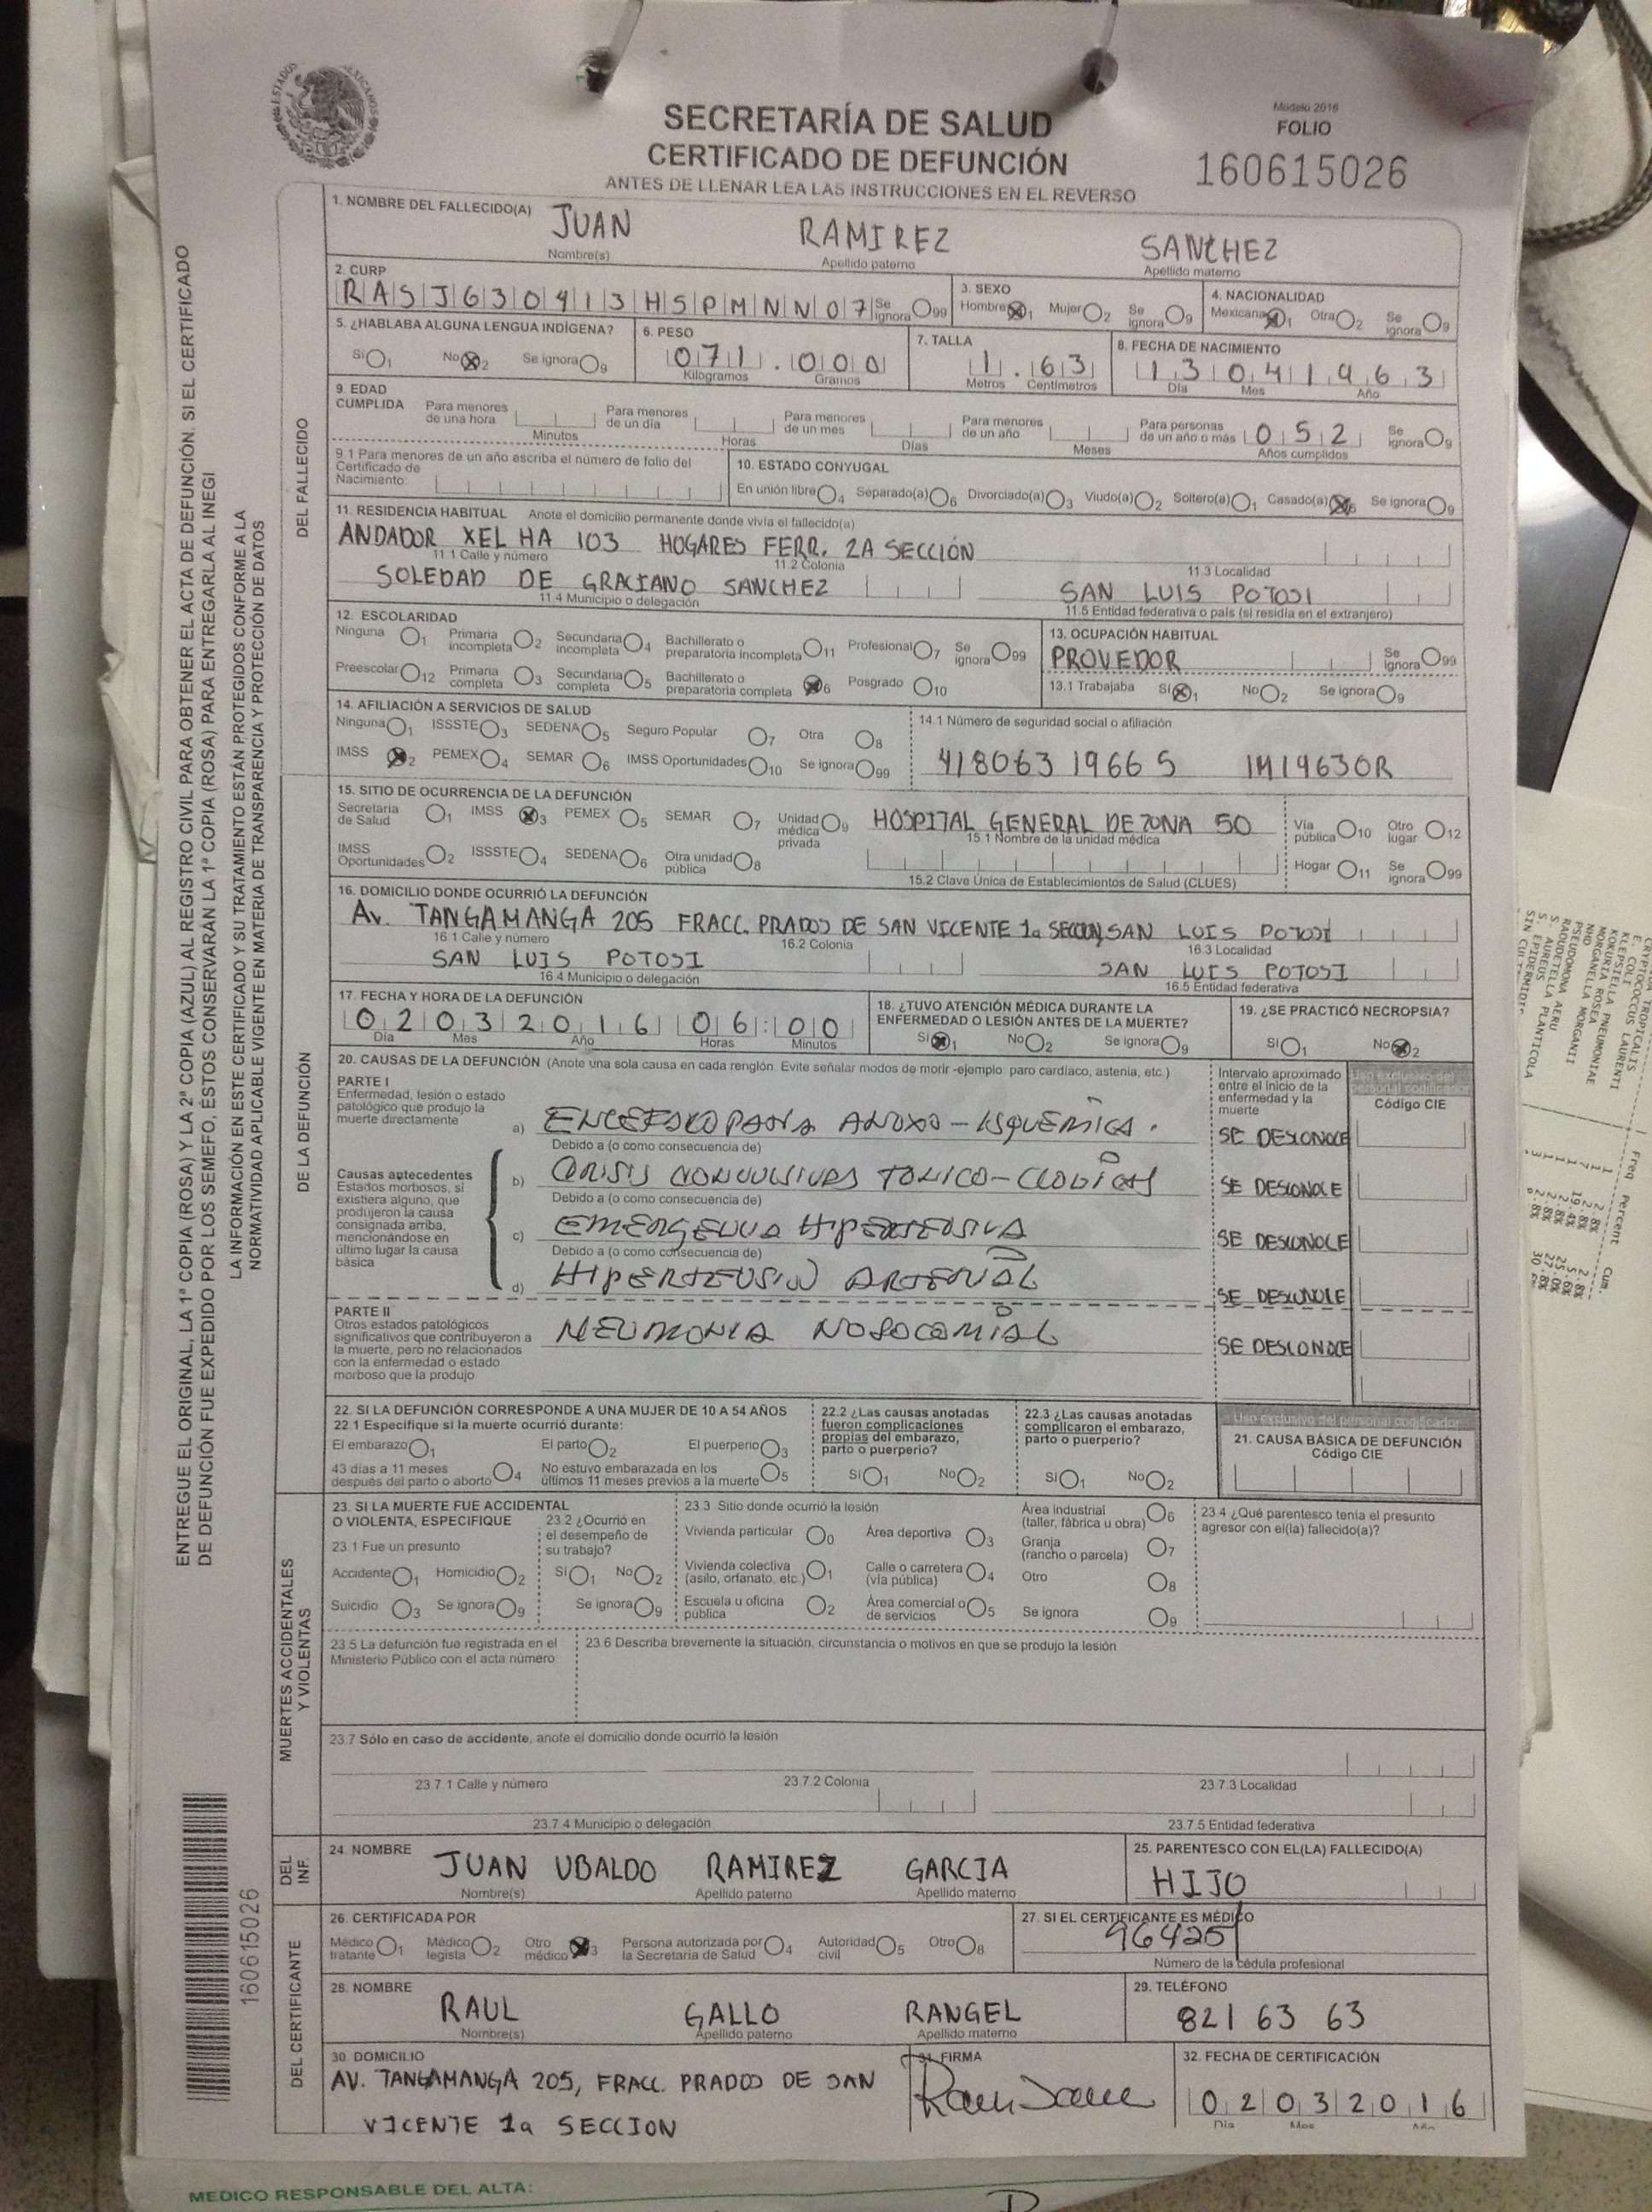 SECRETARÍA DE SALUD
CERTIFICADO DE DEFUNCIÓN
ANTES DE LLENAR LEA LAS INSTRUCCIONES EN EL REVERSO
Modelo 2016
FOLIO
160615026
ESTADOS MEXICANOS
ENTREGUE EL ORIGINAL, LA 1ª COPIA (ROSA) Y LA 2ª COPIA (AZUL) AL REGISTRO CIVIL PARA OBTENER EL ACTA DE DEFUNCIÓN. SI EL CERTIFICADO
DE DEFUNCIÓN FUE EXPEDIDO POR LOS SEMEFO, ÉSTOS CONSERVARÁN LA 1ª COPIA (ROSA) PARA ENTREGARLA AL INEGI
LA INFORMACIÓN EN ESTE CERTIFICADO Y SU TRATAMIENTO ESTÁN PROTEGIDOS CONFORME A LA
NORMATIVIDAD APLICABLE VIGENTE EN MATERIA DE TRANSPARENCIA Y PROTECCIÓN DE DATOS
160615026
DEL FALLECIDO
1. NOMBRE DEL FALLECIDO(A) JUAN RAMIREZ SANCHEZ
Nombre(s) Apellido paterno Apellido materno
2. CURP
RASJ630413HSPMNN07 Se ignora 99
3. SEXO
Hombre 1 Mujer 2 Se ignora 9
4. NACIONALIDAD
Mexicana 1 Otra 2 Se ignora 9
5. ¿HABLABA ALGUNA LENGUA INDÍGENA?
Sí 1 No 2 Se ignora 9
6. PESO
071.000
Kilogramos Gramos
7. TALLA
1.63
Metros Centímetros
8. FECHA DE NACIMIENTO
13041963
Día Mes Año
9. EDAD
CUMPLIDA
Para menores de una hora Minutos
Para menores de un día Horas
Para menores de un mes Días
Para menores de un año Meses
Para personas de un año o más 052 Años cumplidos
Se ignora 9
9.1 Para menores de un año escriba el número de folio del
Certificado de
Nacimiento:
10. ESTADO CONYUGAL
En unión libre 4 Separado(a) 6 Divorciado(a) 3 Viudo(a) 2 Soltero(a) 1 Casado(a) 5 Se ignora 9
11. RESIDENCIA HABITUAL Anote el domicilio permanente donde vivía el fallecido(a)
ANDADOR XEL HA 103 HOGARES FERR. 2A SECCIÓN
11.1 Calle y número 11.2 Colonia 11.3 Localidad
SOLEDAD DE GRACIANO SANCHEZ SAN LUIS POTOSI
11.4 Municipio o delegación 11.5 Entidad federativa o país (si residía en el extranjero)
12. ESCOLARIDAD
Ninguna 1 Primaria incompleta 2 Secundaria incompleta 4 Bachillerato o preparatoria incompleta 11 Profesional 7 Se ignora 99
Preescolar 12 Primaria completa 3 Secundaria completa 5 Bachillerato o preparatoria completa 6 Posgrado 10
13. OCUPACIÓN HABITUAL
PROVEDOR Se ignora 99
13.1 Trabajaba Sí 1 No 2 Se ignora 9
14. AFILIACIÓN A SERVICIOS DE SALUD
Ninguna 1 ISSSTE 3 SEDENA 5 Seguro Popular 7 Otra 8
IMSS 2 PEMEX 4 SEMAR 6 IMSS Oportunidades 10 Se ignora 99
14.1 Número de seguridad social o afiliación
418063 1966 5 1M1963OR
DE LA DEFUNCIÓN
15. SITIO DE OCURRENCIA DE LA DEFUNCIÓN
Secretaría de Salud 1 IMSS 3 PEMEX 5 SEMAR 7 Unidad médica privada 9
IMSS Oportunidades 2 ISSSTE 4 SEDENA 6 Otra unidad pública 8
HOSPITAL GENERAL DE ZONA 50
15.1 Nombre de la unidad médica
15.2 Clave Única de Establecimientos de Salud (CLUES)
Vía pública 10 Otro lugar 12
Hogar 11 Se ignora 99
16. DOMICILIO DONDE OCURRIÓ LA DEFUNCIÓN
Av. TANGAMANGA 205 FRACC. PRADOS DE SAN VICENTE 1a SECCION, SAN LUIS POTOSI
16.1 Calle y número 16.2 Colonia 16.3 Localidad
SAN LUIS POTOSI SAN LUIS POTOSI
16.4 Municipio o delegación 16.5 Entidad federativa
17. FECHA Y HORA DE LA DEFUNCIÓN
02032016 06:00
Día Mes Año Horas Minutos
18. ¿TUVO ATENCIÓN MÉDICA DURANTE LA
ENFERMEDAD O LESIÓN ANTES DE LA MUERTE?
Sí 1 No 2 Se ignora 9
19. ¿SE PRACTICÓ NECROPSIA?
Sí 1 No 2
20. CAUSAS DE LA DEFUNCIÓN (Anote una sola causa en cada renglón. Evite señalar modos de morir -ejemplo: paro cardíaco, astenia, etc.)
Intervalo aproximado
entre el inicio de la
enfermedad y la
muerte
Uso exclusivo del
personal codificador
Código CIE
PARTE I
Enfermedad, lesión o estado
patológico que produjo la
muerte directamente
a) ENCEFALOPATIA ANOXO-ISQUEMICA. SE DESCONOCE
Debido a (o como consecuencia de)
Causas antecedentes
Estados morbosos, si
existiera alguno, que
produjeron la causa
consignada arriba,
mencionándose en
último lugar la causa
básica
b) CRISIS CONVULSIVAS TONICO-CLONICAS SE DESCONOCE
Debido a (o como consecuencia de)
c) EMERGENCIA HIPERTENSIVA SE DESCONOCE
Debido a (o como consecuencia de)
d) HIPERTENSION ARTERIAL SE DESCONOCE
PARTE II
Otros estados patológicos
significativos que contribuyeron a
la muerte, pero no relacionados
con la enfermedad o estado
morboso que la produjo
NEUMONIA NOSOCOMIAL SE DESCONOCE
22. SI LA DEFUNCIÓN CORRESPONDE A UNA MUJER DE 10 A 54 AÑOS
22.1 Especifique si la muerte ocurrió durante:
El embarazo 1 El parto 2 El puerperio 3
43 días a 11 meses después del parto o aborto 4 No estuvo embarazada en los últimos 11 meses previos a la muerte 5
22.2 ¿Las causas anotadas
fueron complicaciones
propias del embarazo,
parto o puerperio?
Sí 1 No 2
22.3 ¿Las causas anotadas
complicaron el embarazo,
parto o puerperio?
Sí 1 No 2
Uso exclusivo del personal codificador
21. CAUSA BÁSICA DE DEFUNCIÓN
Código CIE
MUERTES ACCIDENTALES
Y VIOLENTAS
23. SI LA MUERTE FUE ACCIDENTAL
O VIOLENTA, ESPECIFIQUE
23.1 Fue un presunto
Accidente 1 Homicidio 2
Suicidio 3 Se ignora 9
23.2 ¿Ocurrió en
el desempeño de
su trabajo?
Sí 1 No 2
Se ignora 9
23.3 Sitio donde ocurrió la lesión
Vivienda particular 0 Área deportiva 3 Área industrial (taller, fábrica u obra) 6
Vivienda colectiva (asilo, orfanato, etc.) 1 Calle o carretera (vía pública) 4 Granja (rancho o parcela) 7
Otro 8
Escuela u oficina pública 2 Área comercial o de servicios 5 Se ignora 9
23.4 ¿Qué parentesco tenía el presunto
agresor con el(la) fallecido(a)?
23.5 La defunción fue registrada en el
Ministerio Público con el acta número:
23.6 Describa brevemente la situación, circunstancia o motivos en que se produjo la lesión
23.7 Sólo en caso de accidente, anote el domicilio donde ocurrió la lesión
23.7.1 Calle y número 23.7.2 Colonia 23.7.3 Localidad
23.7.4 Municipio o delegación 23.7.5 Entidad federativa
DEL INF.
24. NOMBRE JUAN UBALDO RAMIREZ GARCIA
Nombre(s) Apellido paterno Apellido materno
25. PARENTESCO CON EL(LA) FALLECIDO(A)
HIJO
DEL CERTIFICANTE
26. CERTIFICADA POR
Médico tratante 1 Médico legista 2 Otro médico 3 Persona autorizada por la Secretaría de Salud 4 Autoridad civil 5 Otro 8
27. SI EL CERTIFICANTE ES MÉDICO
96425
Número de la cédula profesional
28. NOMBRE RAUL GALLO RANGEL
Nombre(s) Apellido paterno Apellido materno
29. TELÉFONO
821 63 63
30. DOMICILIO
AV. TANGAMANGA 205, FRACC. PRADOS DE SAN
VICENTE 1a SECCION
31. FIRMA
32. FECHA DE CERTIFICACIÓN
02032016
Día Mes Año
MEDICO RESPONSABLE DEL ALTA: